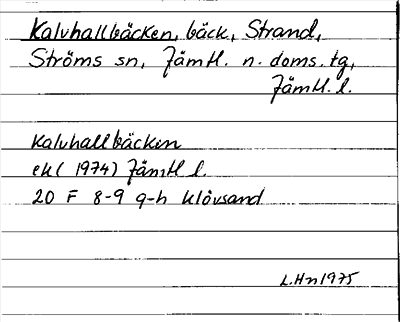 Kalvhallbäcken, bäck, Strand,
Ströms sn, Jämtl. n. doms. tg,
Jämtl. l.
Kalvhallbäcken
ek (1974) Jämtl l.
20 F 8-9 g-h Klövsand
L.Hn 1975